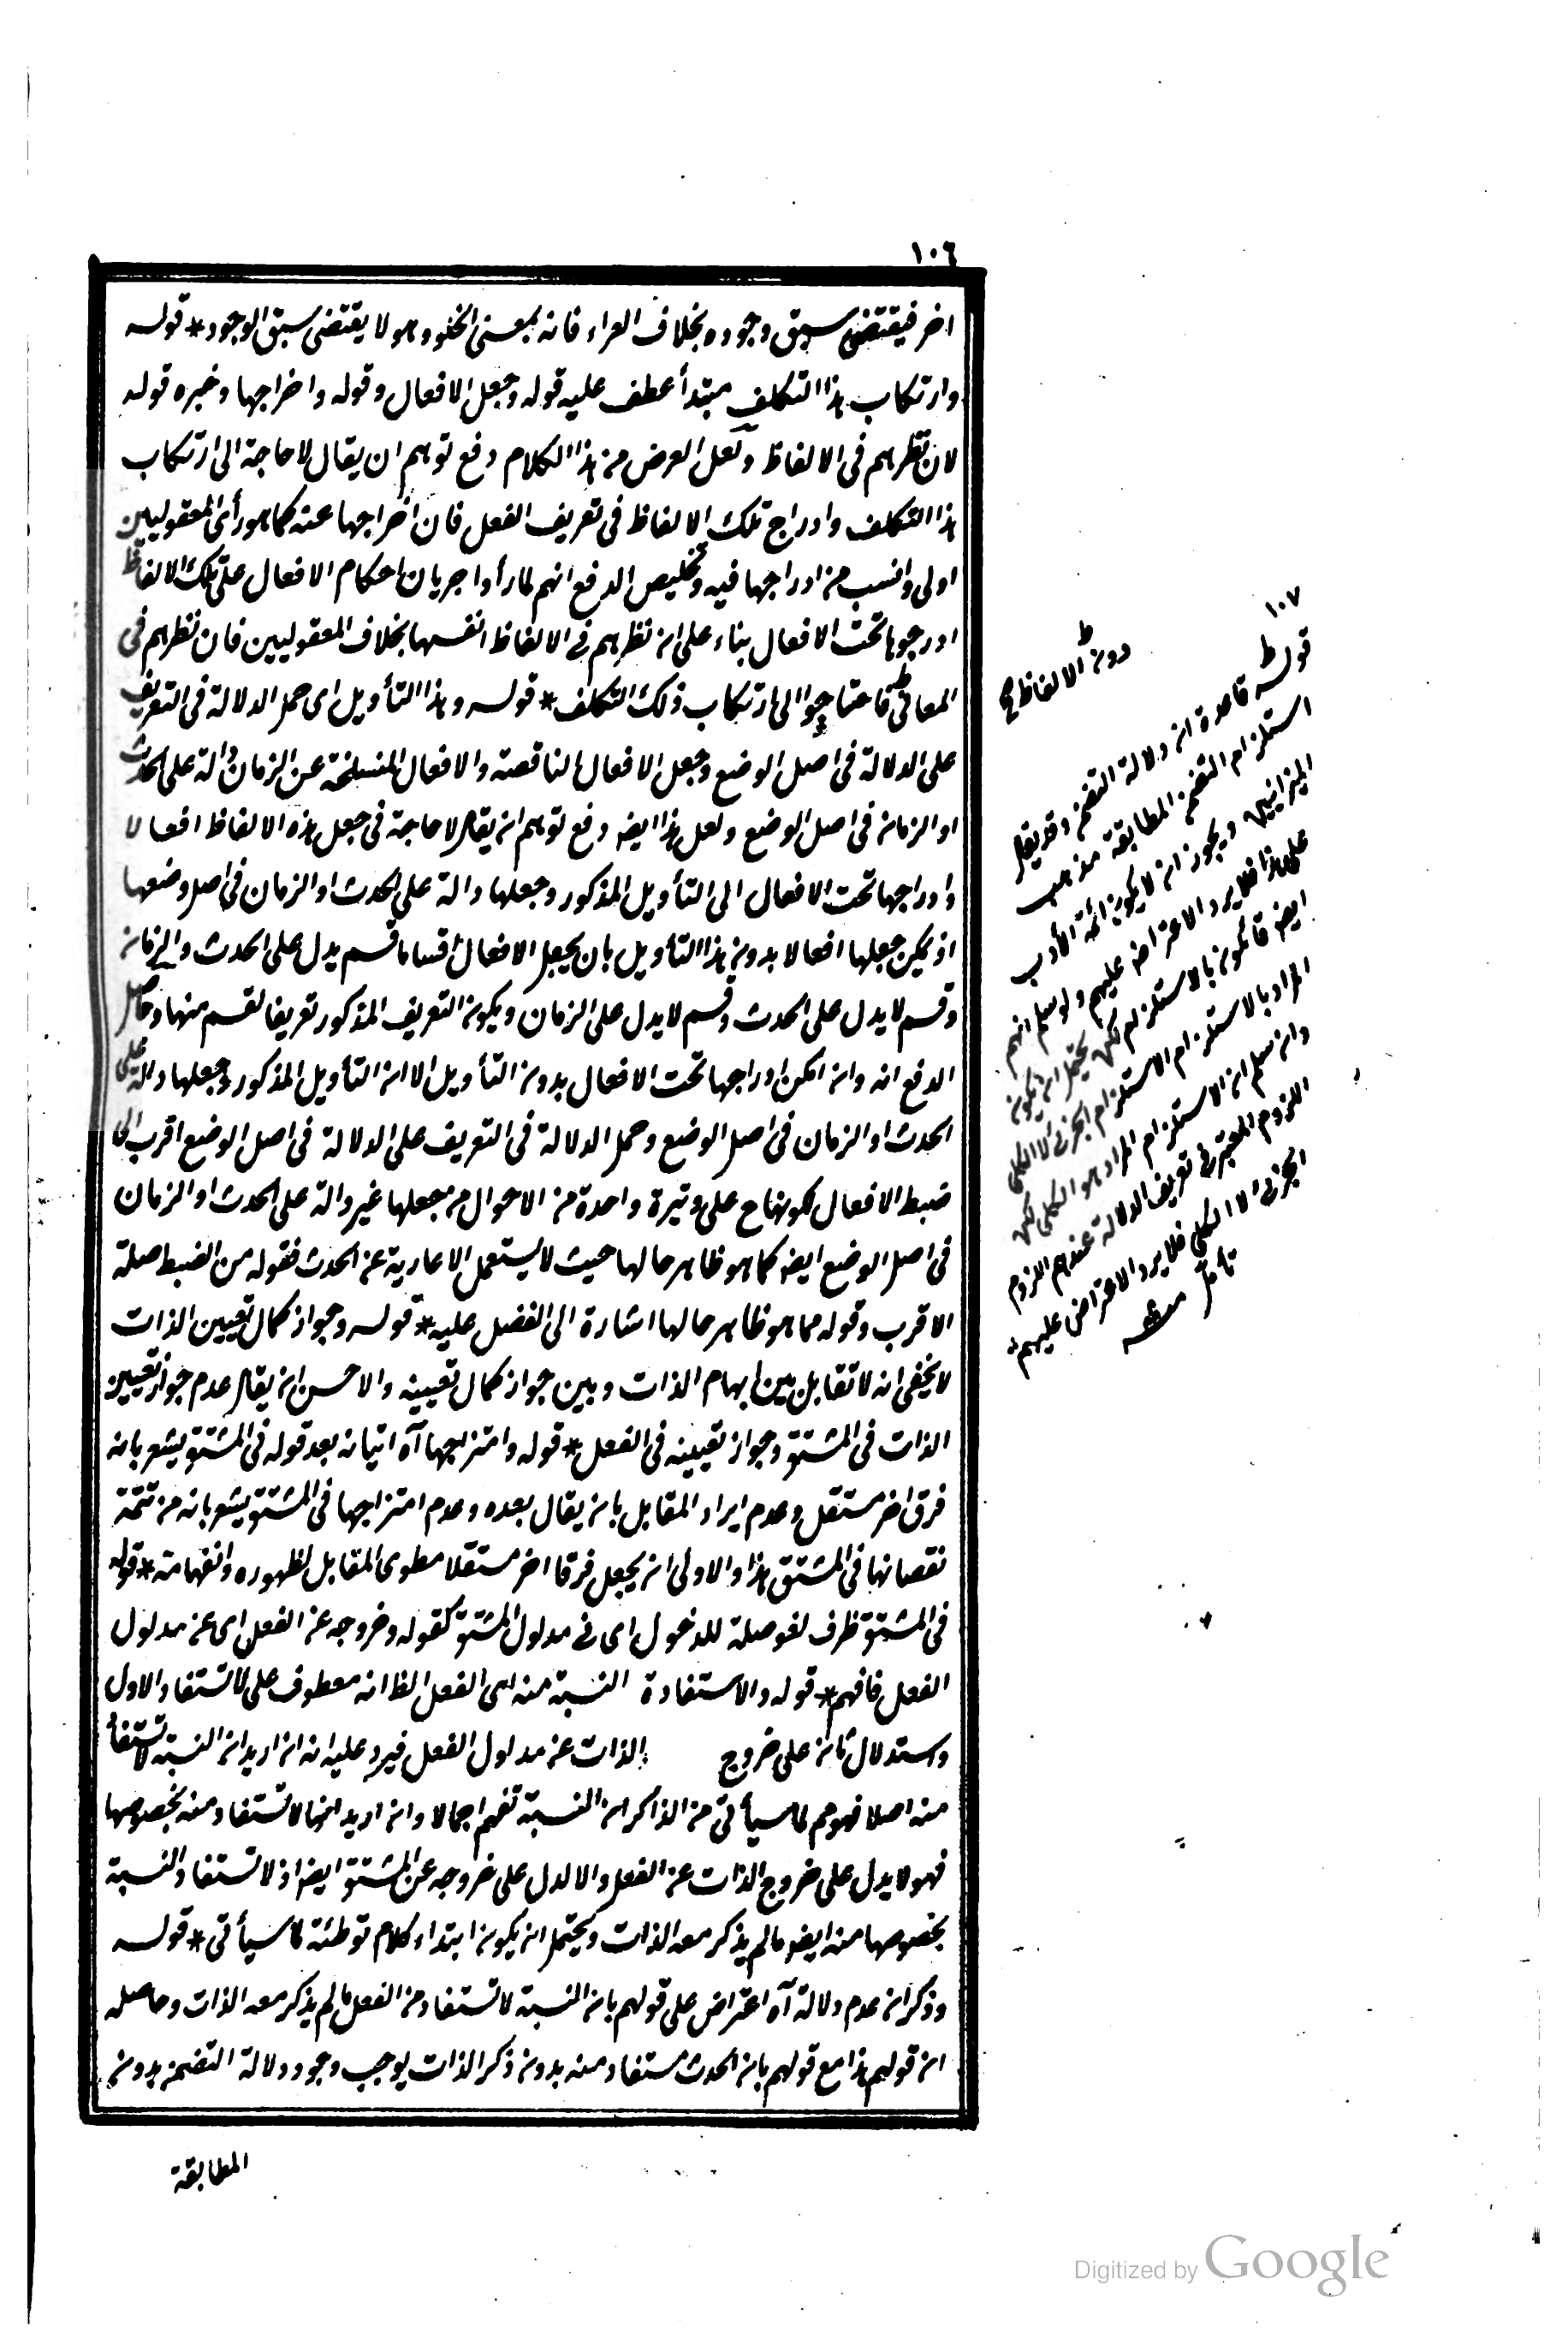 ١٠٦
اخر فيقتضى سبق وجوده بخلاف العراء فانه بمعنى الخلو وهو لا يقتضى سبق الوجود * قوله
وارتكاب هذا التكلف مبتدأ عطف عليه قوله وجعل الافعال وقوله واخراجها وخبره قوله
لان نظرهم فى الالفاظ ولعل الغرض من هذا الكلام دفع توهم ان يقال لا حاجة الى ارتكاب
هذا التكلف وادراج تلك الالفاظ فى تعريف الفعل فان اخراجها عنه كما هو رأى المعقوليين
اولى وانسب من ادراجها فيه وتخليص الدفع انهم لما رأوا جريان احكام الافعال على تلك الالفاظ
ادرجوها تحت الافعال بناء على ان نظرهم فى الالفاظ انفسها بخلاف المعقوليين فان نظرهم فى
المعانى فاحتاجوا الى ارتكاب ذلك التكلف * قوله وهذا التأويل اى حمل الدلالة فى التعريف
على الدلالة فى اصل الوضع وجعل الافعال الناقصة والافعال المنسلخة عن الزمان دالة على الحدث
او الزمان فى اصل الوضع ولعل هذا ايضا دفع توهم ان يقال لا حاجة فى جعل هذه الالفاظ افعالا
وادراجها تحت الافعال الى التأويل المذكور وجعلها دالة على الحدث او الزمان فى اصل وضعها
اذ يمكن جعلها افعالا بدون هذا التأويل بان يجعل الافعال اقساما قسم يدل على الحدث والزمان
وقسم لا يدل على الحدث وقسم لا يدل على الزمان ويكون التعريف المذكور تعريفا لقسم منها وحاصل
الدفع انه وان امكن ادراجها تحت الافعال بدون التأويل الا ان التأويل المذكور وجعلها دالة على
الحدث او الزمان فى اصل الوضع وحمل الدلالة فى التعريف على الدلالة فى اصل الوضع اقرب الى
ضبط الافعال لكونها ح على وتيرة واحدة من الاحوال من جعلها غير دالة على الحدث او الزمان
فى اصل الوضع ايضا كما هو ظاهر حالها حيث لا يستعمل الا عارية عن الحدث فقوله من الضبط صلة
الاقرب وقوله مما هو ظاهر حالها اشارة الى المفضل عليه * قوله وجواز كمال تعيين الذات
لا يخفى انه لا تقابل بين ابهام الذات وبين جواز كمال تعيينه والاحسن ان يقال عدم جواز تعيين
الذات فى المشتق وجواز تعيينه فى الفعل * قوله وامتزاجها آه اتيانه بعد قوله فى المشتق يشعر بانه
فرق اخر مستقل وعدم ايراد المقابل بان يقال بعده وعدم امتزاجها فى المشتق يشعر بانه من تتمة
نقصانها فى المشتق هذا والاولى ان يجعل فرقا اخر مستقلا مطوى المقابل لظهوره وانفهامه * قوله
فى المشتق ظرف لغو صلة للدخول اى فى مدلول المشتق كقوله وخروجه عن الفعل اى عن مدلول
الفعل فافهم * قوله والاستفادة النسبة منه اى الفعل الظ انه معطوف على لا تستفاد الاول
وستدلال ثان على خروج الذات عن مدلول الفعل فيرد عليه انه ان اريد ان النسبة لا تستفاد
منه اصلا فهو مم لما سيأتى من الذاكر ان النسبة تفهم اجمالا وان اريد انها لا تستفاد منه بخصوصها
فهو لا يدل على خروج الذات عن الفعل والا لدل على خروجه عن المشتق ايضا اذ لا تستفاد النسبة
بخصوصها منه ايضا ما لم يذكر معه الذات ويحتمل ان يكون ابتداء كلام توطئة لما سيأتى * قوله
وذكر ان عدم دلالة آه اعتراض على قولهم بان النسبة لا تستفاد من الفعل ما لم يذكر معه الذات وحاصله
ان قولهم هذا مع قولهم بان الحدث مستفاد منه بدون ذكر الذات يوجب وجود دلالة التضمن بدون
المطابقة
دون الالفاظ
١٠٧
قوله قاعدة ان دلالة التضمن وقد يقال
استلزام التضمن المطابقة مذهب
الميزانيين ويجوز ان لا يكون ائمة الأدب
على هذا فلا يرد الاعتراض عليهم ولو سلم انهم
ايضا قائلون بالاستلزام لكن يحتمل ان يكون
المراد بالاستلزام الاستلزام الجزئى لا الكلى
وان سلم ان الاستلزام المراد هو الكلى لكن
اللزوم المعتبر فى تعريف الدلالة عندهم اللزوم
الجزئى لا الكلى فلا يرد الاعتراض عليهم
تأمل منه
Digitized by Google